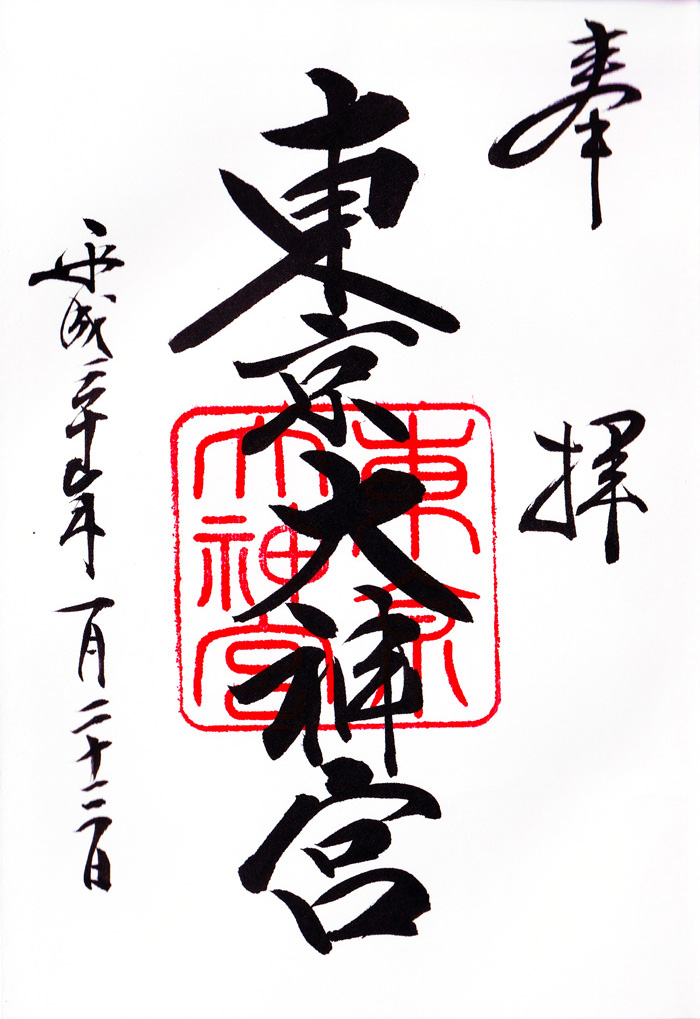 奉拝
東京大神宮
平成二十五年一月二十三日
東京
大神宮